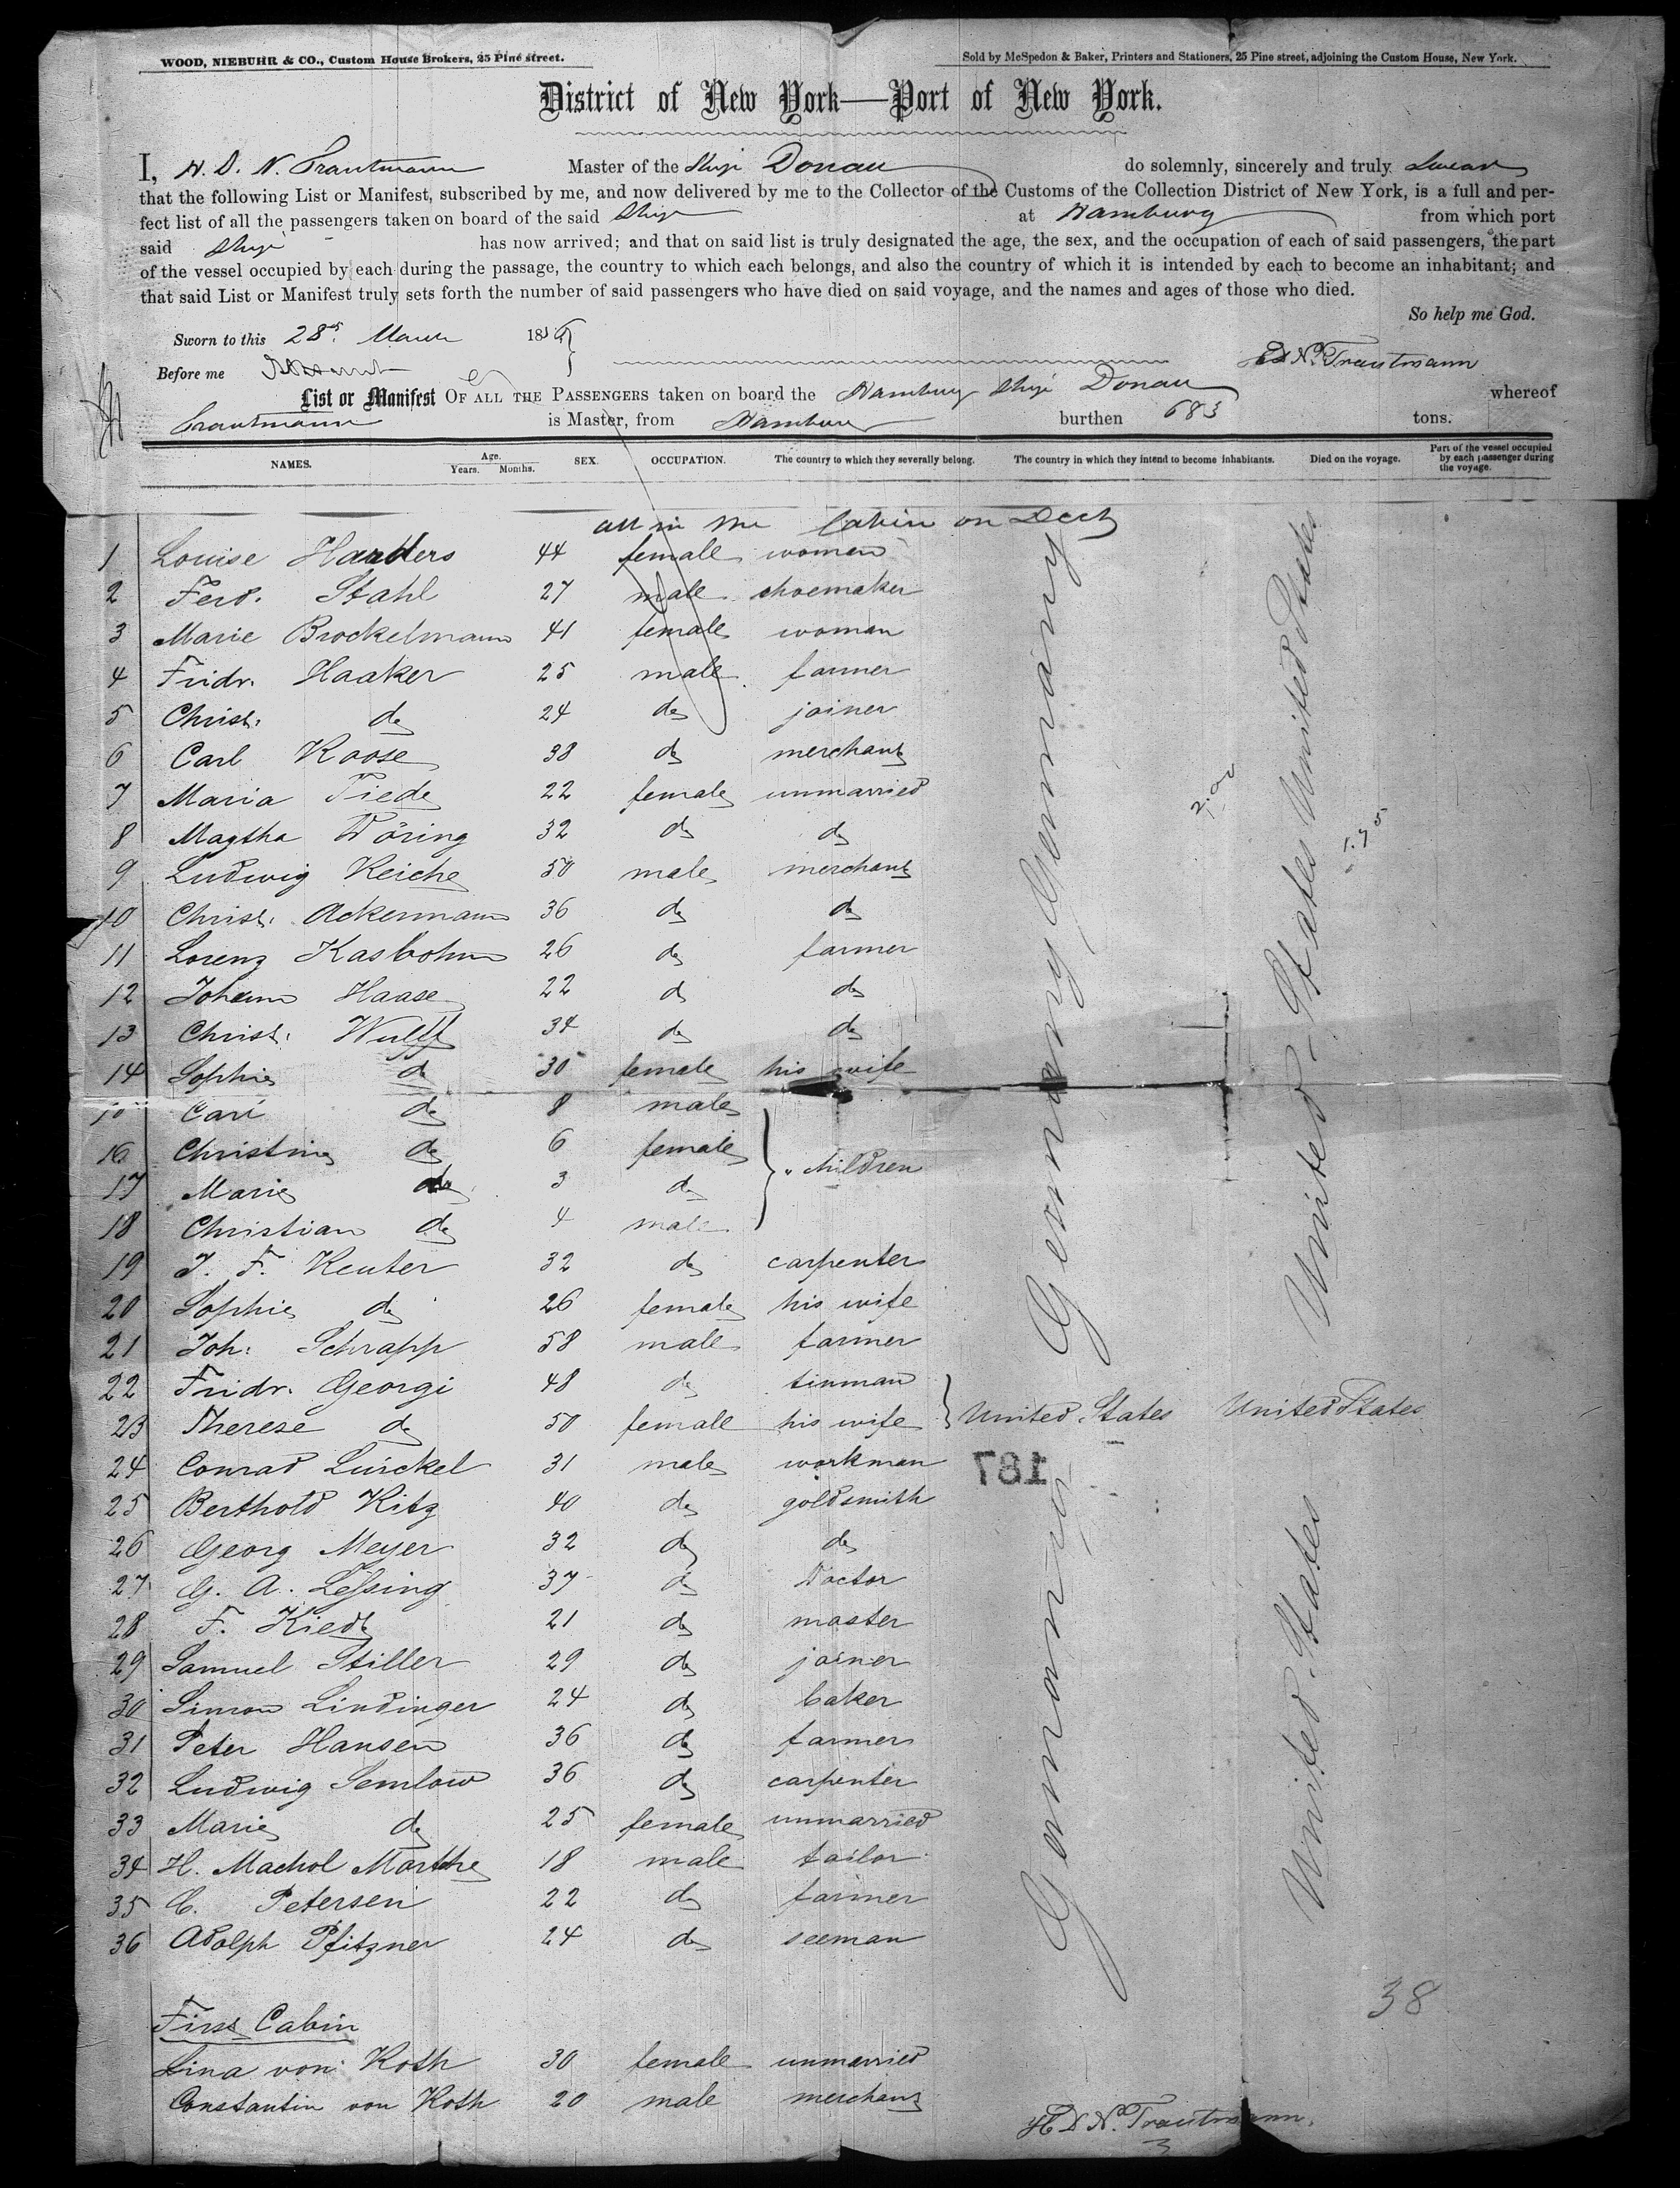 WOOD, NIEBUHR & CO., Custom House Brokers, 25 Pine street.
Sold by McSpedon & Baker, Printers and Stationers, 25 Pine street, adjoining the Custom House, New York.
District of New York—Port of New York.
I, H. D. N. Trautmann Master of the Ship Donau do solemnly, sincerely and truly Swear
that the following List or Manifest, subscribed by me, and now delivered by me to the Collector of the Customs of the Collection District of New York, is a full and per-
fect list of all the passengers taken on board of the said Ship at Hamburg from which port
said Ship has now arrived; and that on said list is truly designated the age, the sex, and the occupation of each of said passengers, the part
of the vessel occupied by each during the passage, the country to which each belongs, and also the country of which it is intended by each to become an inhabitant; and
that said List or Manifest truly sets forth the number of said passengers who have died on said voyage, and the names and ages of those who died.
So help me God.
Sworn to this 28 March 185
Before me
H D Nc. Trautmann
List or Manifest OF ALL THE PASSENGERS taken on board the Hamburg Ship Donau whereof
Trautmann is Master, from Hamburg burthen 683 tons.
NAMES. Age. Years. Months. SEX. OCCUPATION. The country to which they severally belong. The country in which they intend to become inhabitants. Died on the voyage. Part of the vessel occupied by each passenger during the voyage.
all in the Cabin on Deck
1 Louise Harders 44 female woman
2 Ferd. Stahl 27 male shoemaker
3 Marie Brockelmann 41 female woman
4 Fridr. Haaker 25 male farmer
5 Christ. do 24 do joiner
6 Carl Koose 38 do merchant
7 Maria Tiede 22 female unmarried
8 Magtha Döring 32 do do
9 Ludwig Reiche 50 male merchant
10 Christ. Ackermann 36 do do
11 Lorenz Kasbohm 26 do farmer
12 Johann Haase 22 do do
13 Christ. Wulff 34 do do
14 Sophie do 30 female his wife
15 Carl do 8 male
16 Christine do 6 female
children
17 Marie do 3 do
18 Christian do 4 male
19 J. F. Reuter 32 do carpenter
20 Sophie do 26 female his wife
21 Joh: Schrapp 58 male farmer
22 Fridr. Georgi 48 do tinman
23 Therese do 50 female his wife United States United States
24 Conrad Lückel 31 male workman
187
25 Berthold Kitz 40 do goldsmith
26 Georg Meyer 32 do do
27 G. A. Lessing 37 do Doctor
28 F. Kiedt 21 do master
29 Samuel Stiller 29 do joiner
30 Simon Lindinger 24 do baker
31 Peter Hansen 36 do farmer
32 Ludwig Semlow 36 do carpenter
33 Marie do 25 female unmarried
34 H. Machol Marthe 18 male tailor
35 C. Petersen 22 do farmer
36 Adolph Pfitzner 24 do seeman
Germany Germany Germany
United States United States United States
2.00
1.75
38
First Cabin
Lina von Roth 30 female unmarried
Constantin von Roth 20 male merchant
H D Nc. Trautmann.